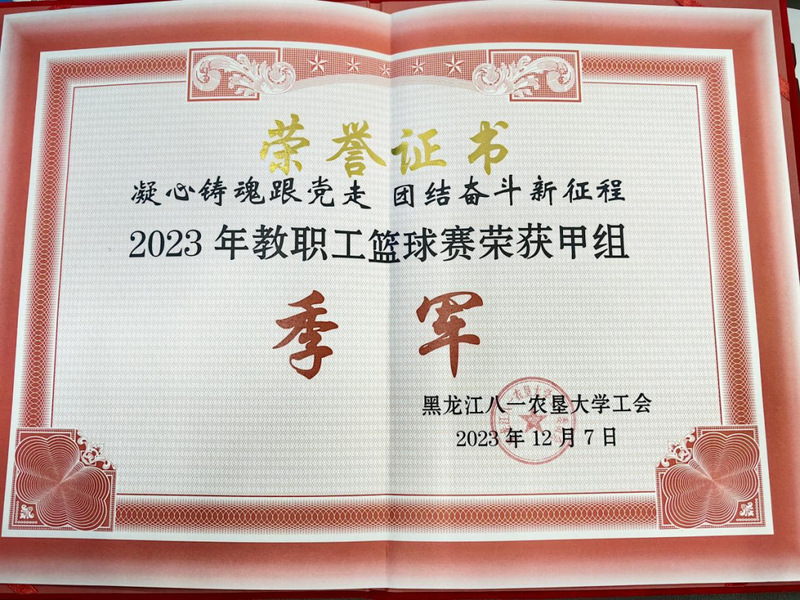 荣誉证书
凝心铸魂跟党走 团结奋斗新征程
2023年教职工篮球赛荣获甲组
季军
黑龙江八一农垦大学工会
2023年12月7日